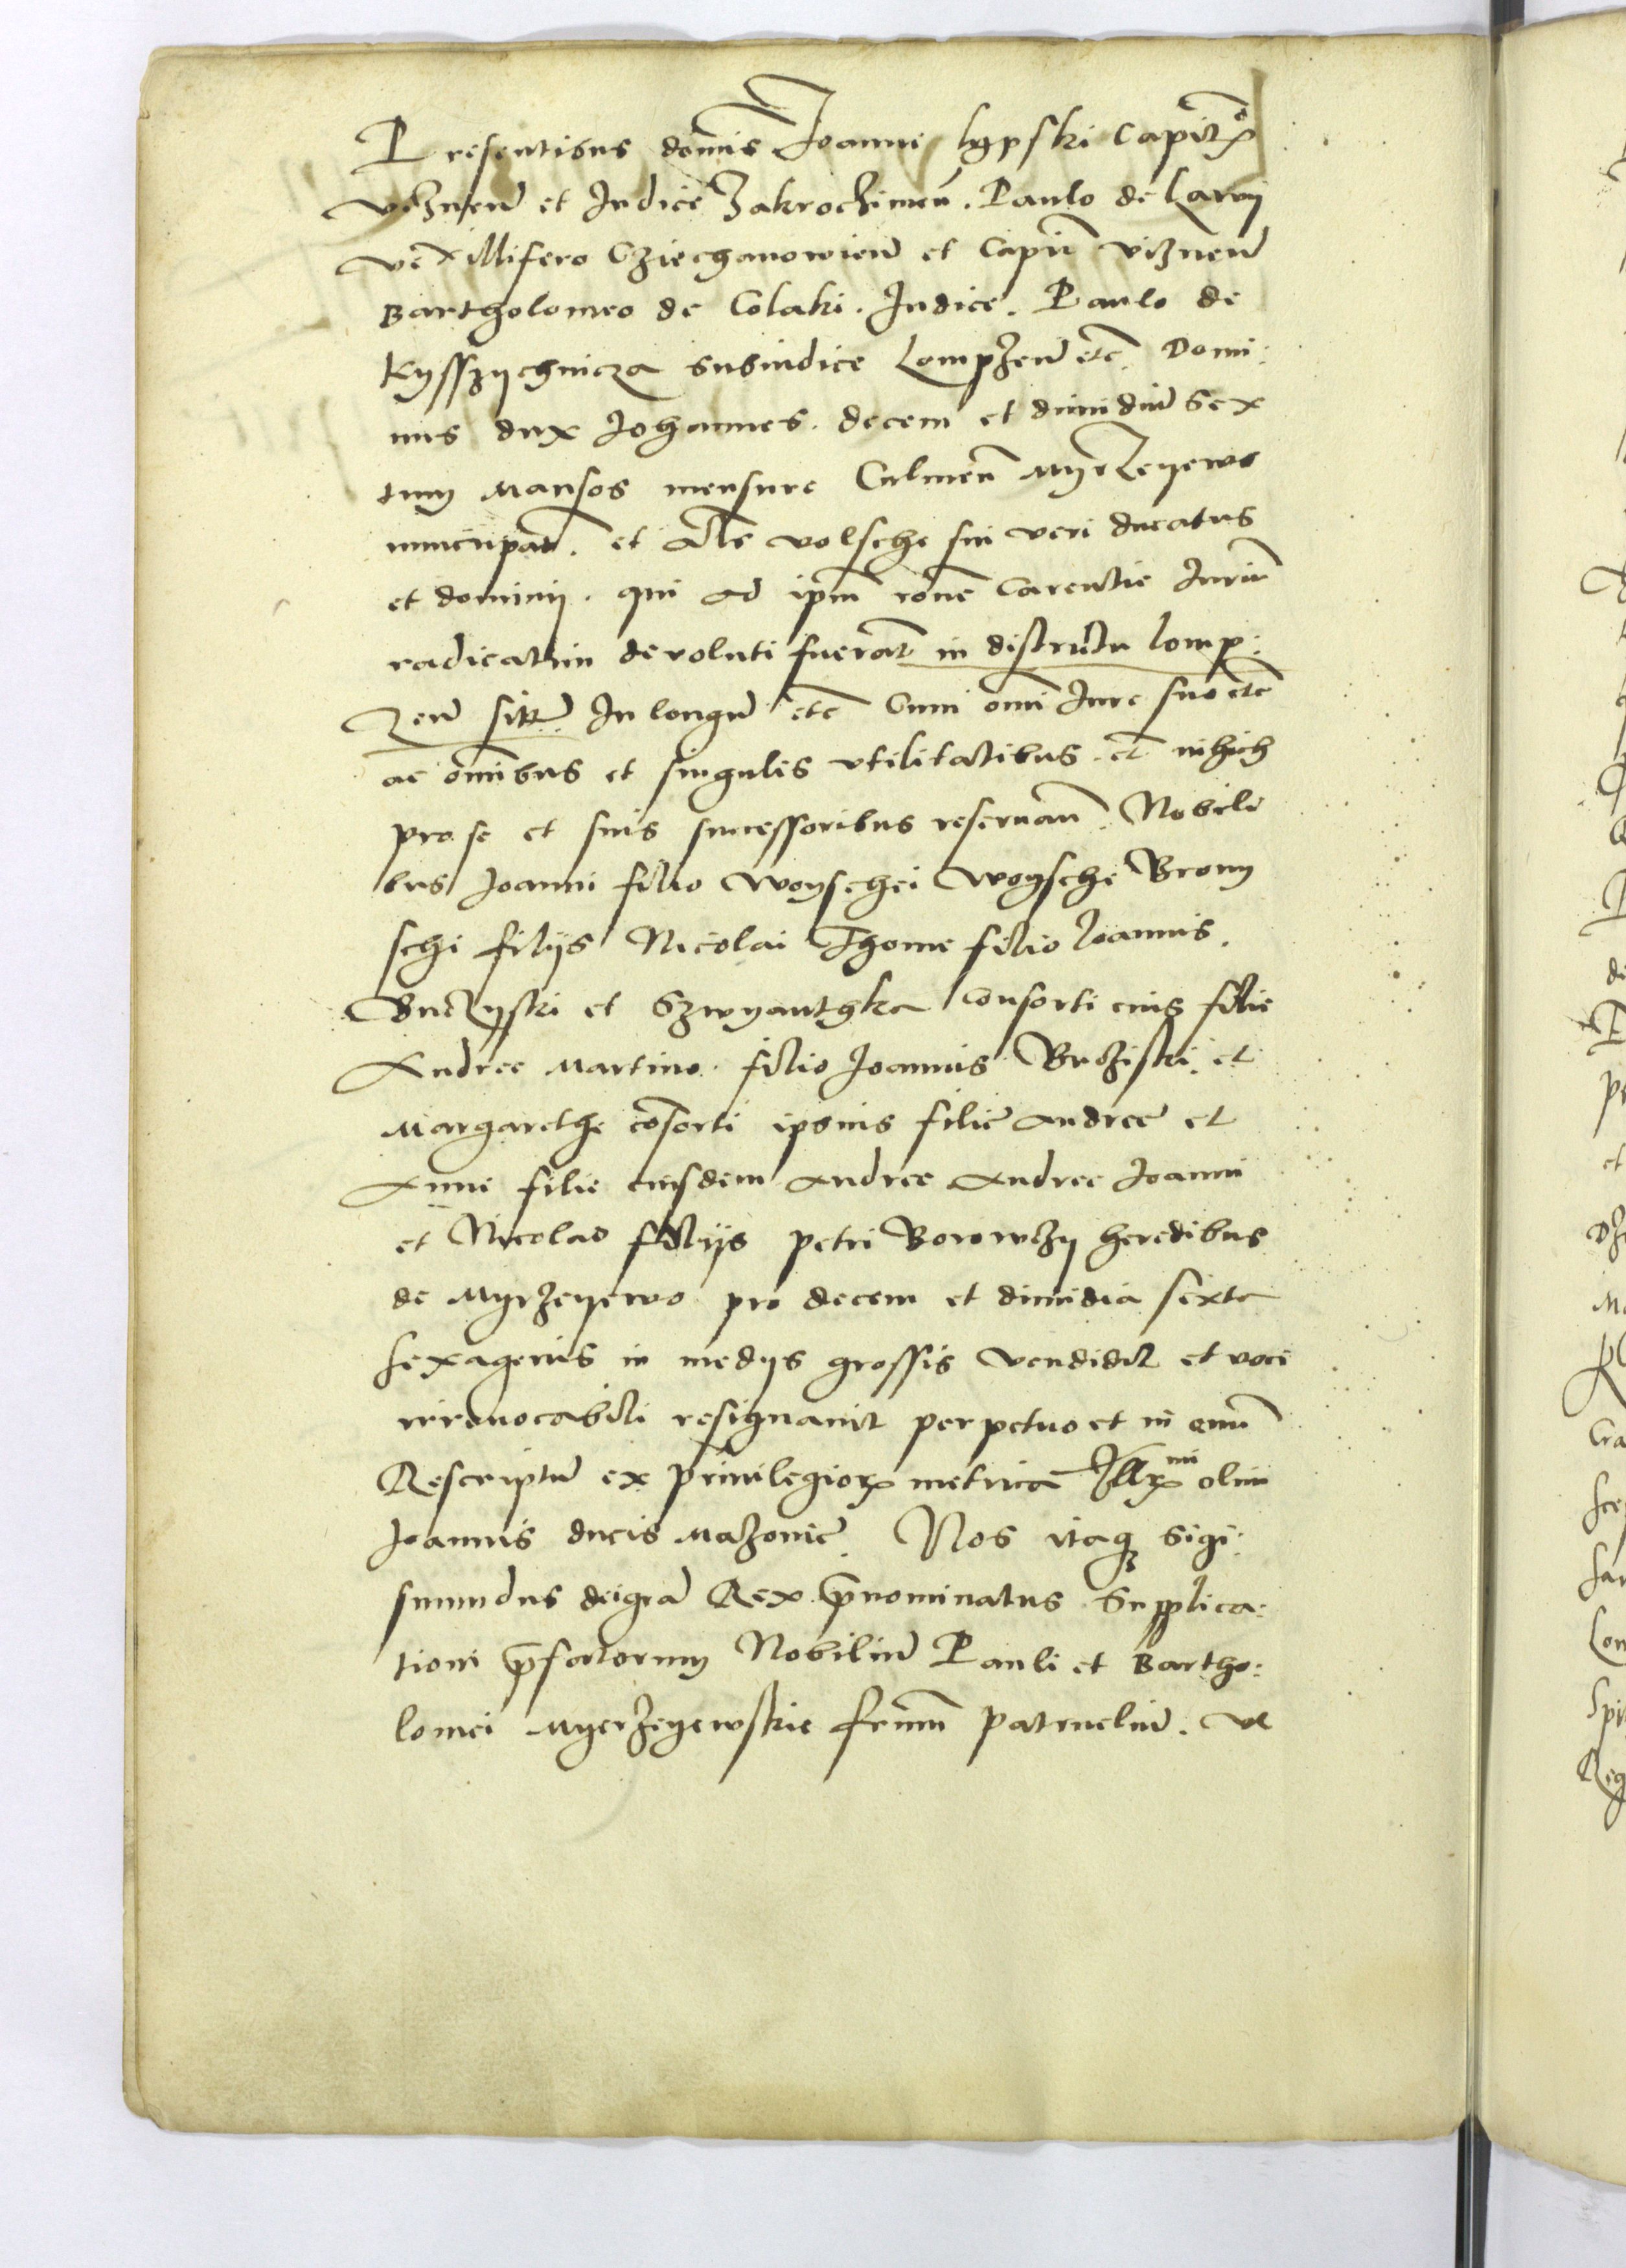 Presentibus domīs Joanne lypski Capit
vyznen̄ et Judice Zakrochimen̄. Paulo de Lawy
vexillifero Cziechanowien̄ et Capīn vizneñ
Bartholomeo de Colaki. Judice. Paulo de
Kysszychnicza subiudice Lompzen̄ etc̄. Domi:
nus dux Johannes. decem et dimidiū Sex
tum Mansos mensure Culmen̄ Myrzeyewo
nuncupat̄. et als volsche sui veri ducatus
et dominij. qui ad ip̄m rōne Carentie Juriū
radicatim devoluti fuerāt in districtu lomp:
zen̄ In longū etc̄ Cum om̄i Jure suo etc̄
ac om̄ibus et singulis vtilitatibus. et nihich
pro se et suis successoribus reseruan̄. Nobili
bus Joanni filio Woyschei Woysche Brony
schi filijs Nicolai Thome filio Joannis.
Buczyski et Szwyanthka Consorti eius filie
Andree Martino. filio Joannis Buchziski. et
Margarethe cōsorti ipsius filie andree et
Anne filie eiusdem andree Andree Joanni
et Nicolao filijs petri Borowczy heredibus
de Myrzeyewo pro decem et dimidia sexta
sexagenis in medys grossis vendidit et voce
irreuocabili resignauit perpetuo et in euū
Rescriptū ex priuilegiorꝝ metrica Illrꝫ mi olim
Joannis ducis Mazouie. Nos itaqꝫ Sigi:
smundus deigrā Rex p̄nominatus Supplica:
tioni p̄fatorum Nobiliū Pauli et Bartho:
lomei Myerzeyewskie frūm patrueliū. vt